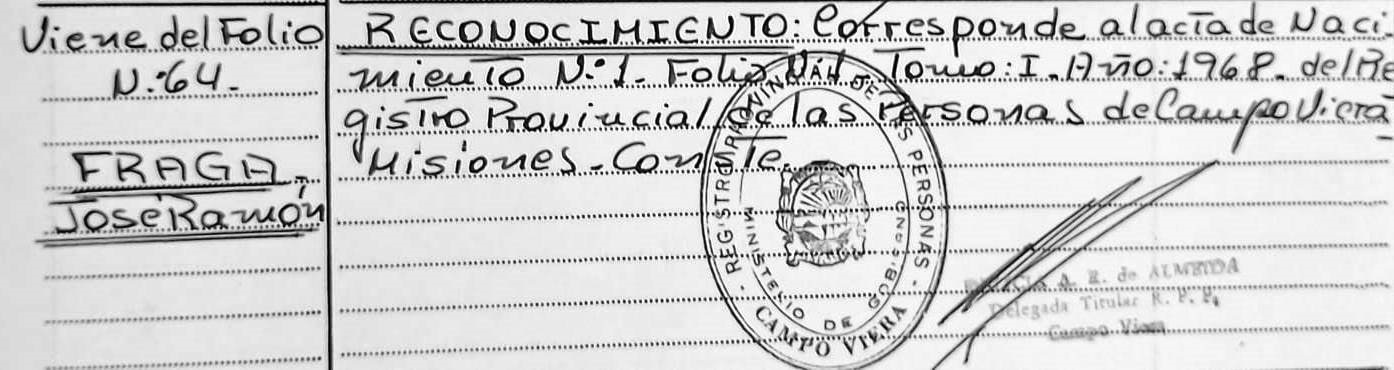 Viene del Folio
N.º 64.
FRAGA,
José Ramón
RECONOCIMIENTO: Corresponde al acta de Naci-
miento N.º 1. Folio Tomo: I. Año: 1968. del Re
gistro Provincial de las Personas de Campo Viera
Misiones. Conste.
REGISTRO PROVINCIAL DE LAS PERSONAS
MINISTERIO DE GOBIERNO
CAMPO VIERA
A. E. de ALMEIDA
Delegada Titular R. P. P.
Campo Viera